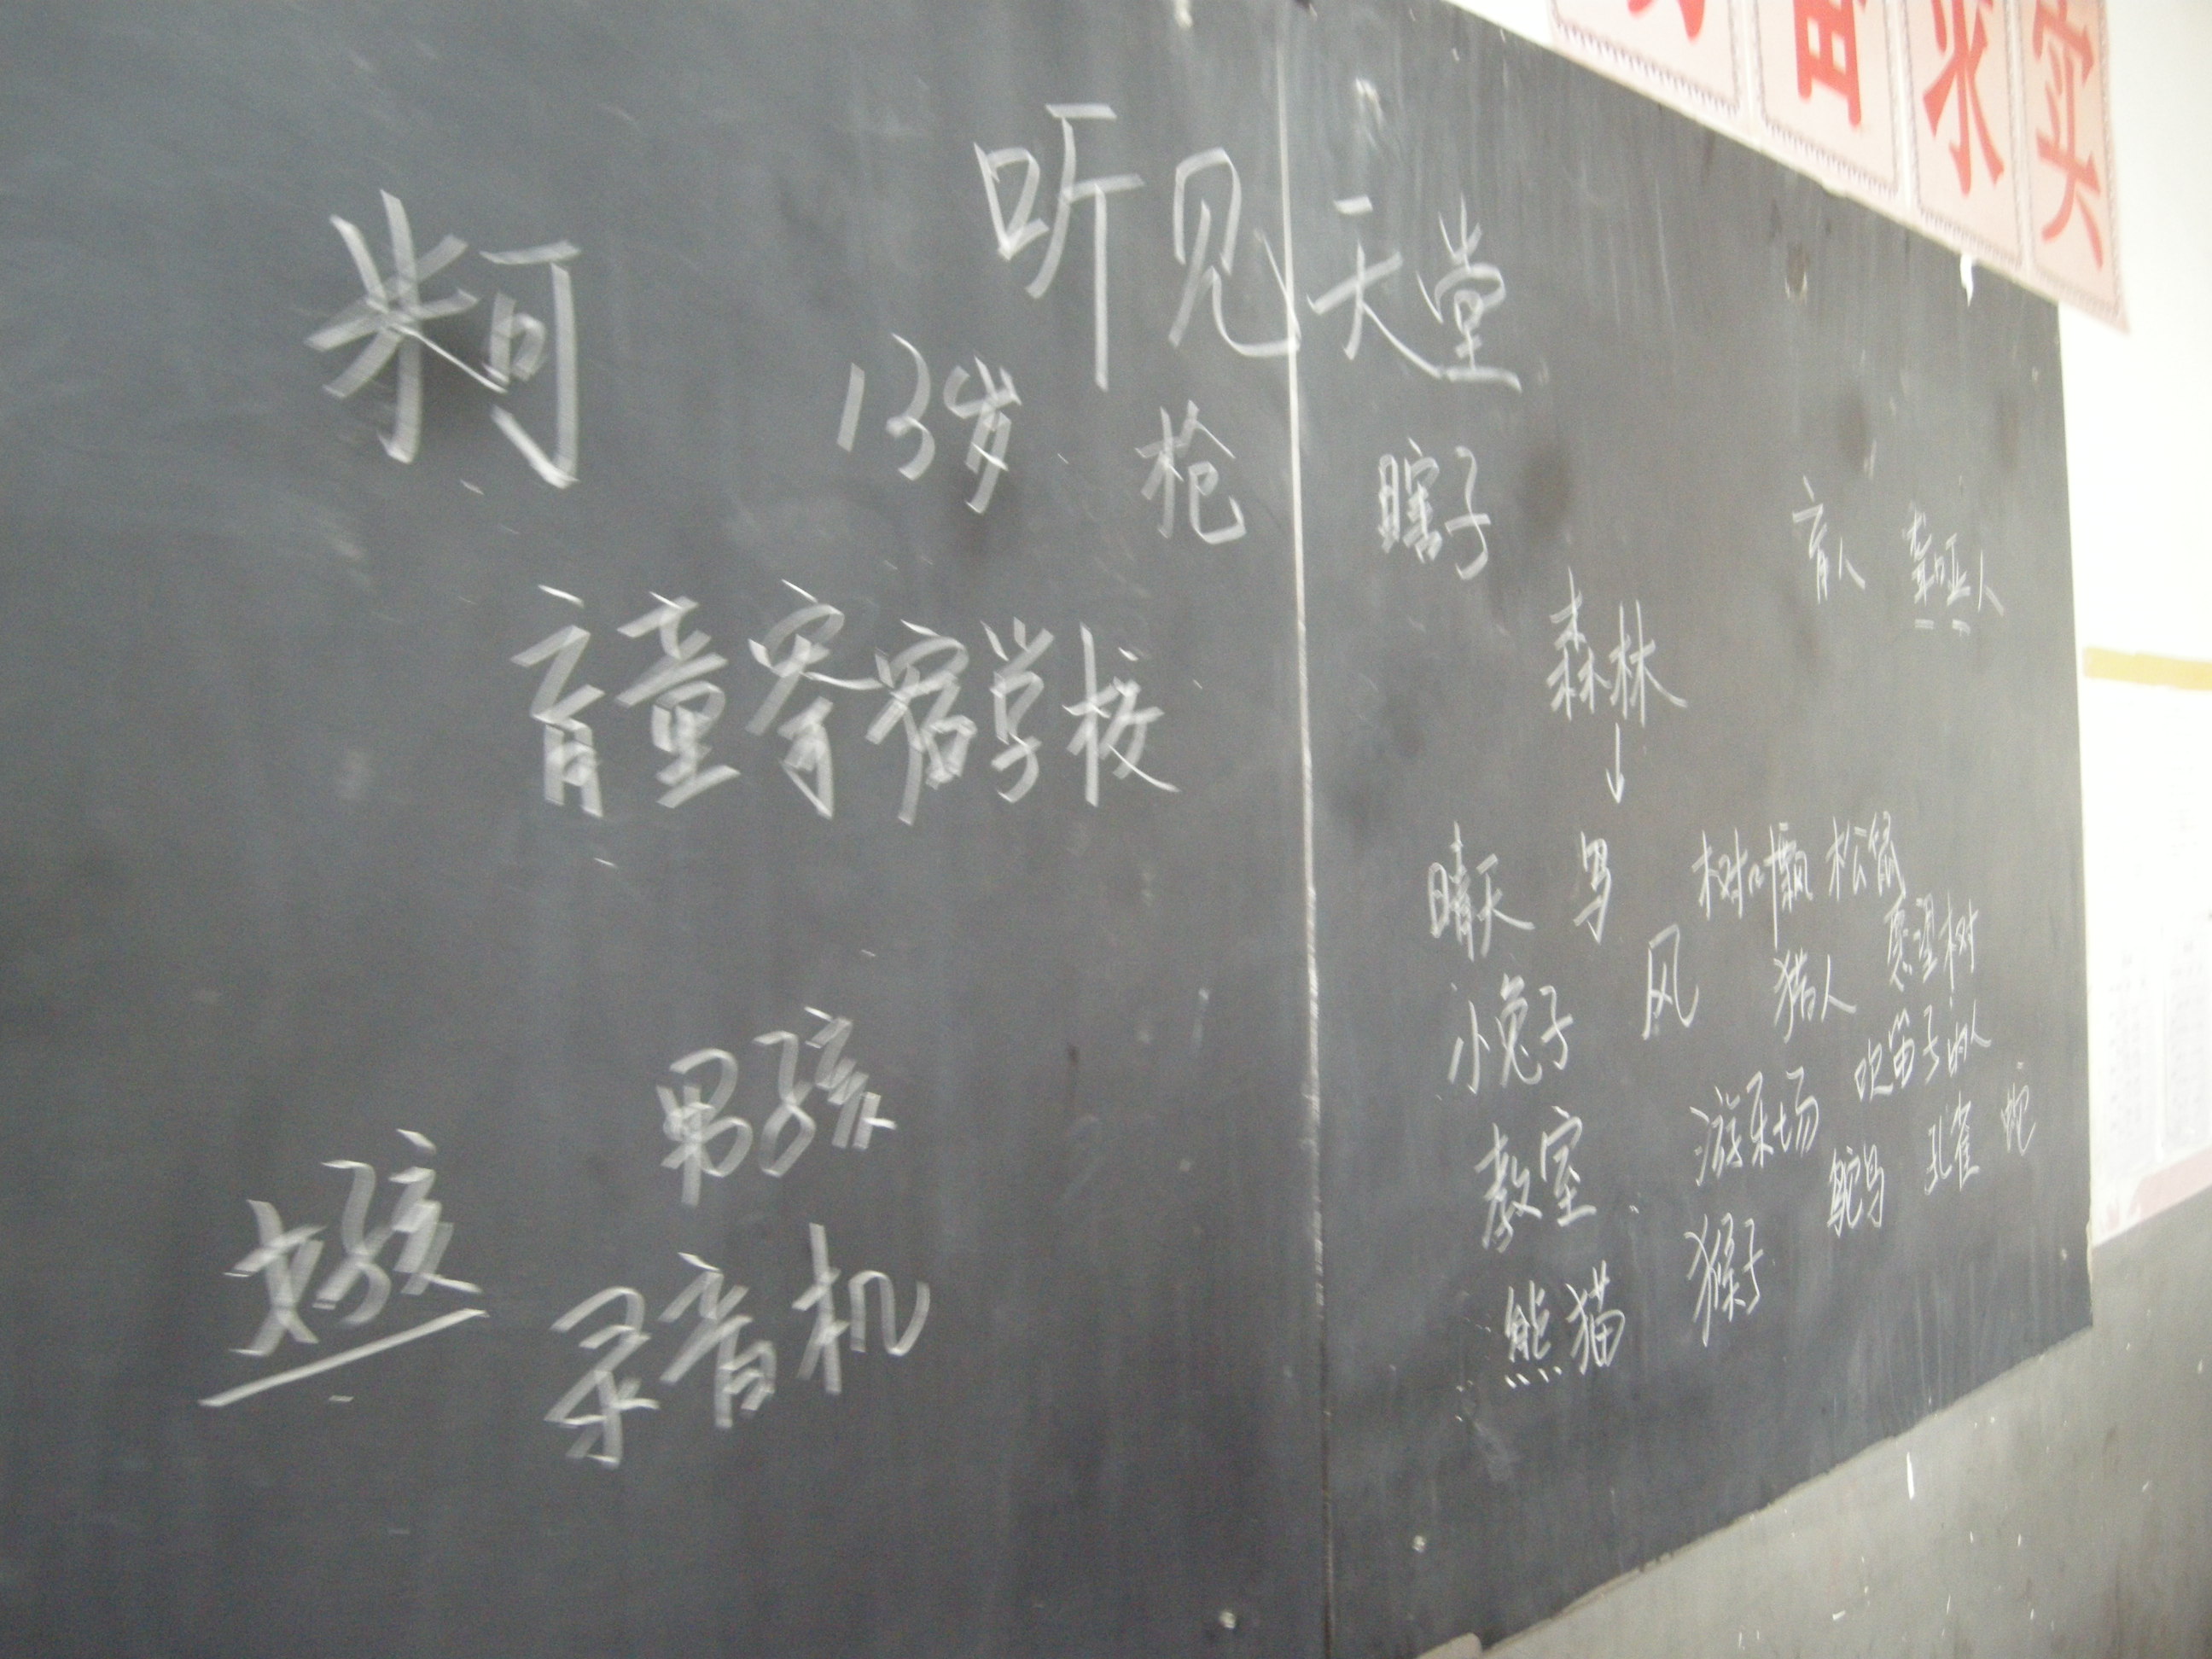 实
求
听见天堂
米可
13岁 枪 瞎子
盲人 聋哑人
盲童寄宿学校
森林
↓
晴天 鸟 树叶飘 松鼠
小兔子 风 猎人 愿望树
教室 游乐场 吹笛子的人
鸵鸟 孔雀 蛇
熊猫 猴子
男孩
女孩
录音机